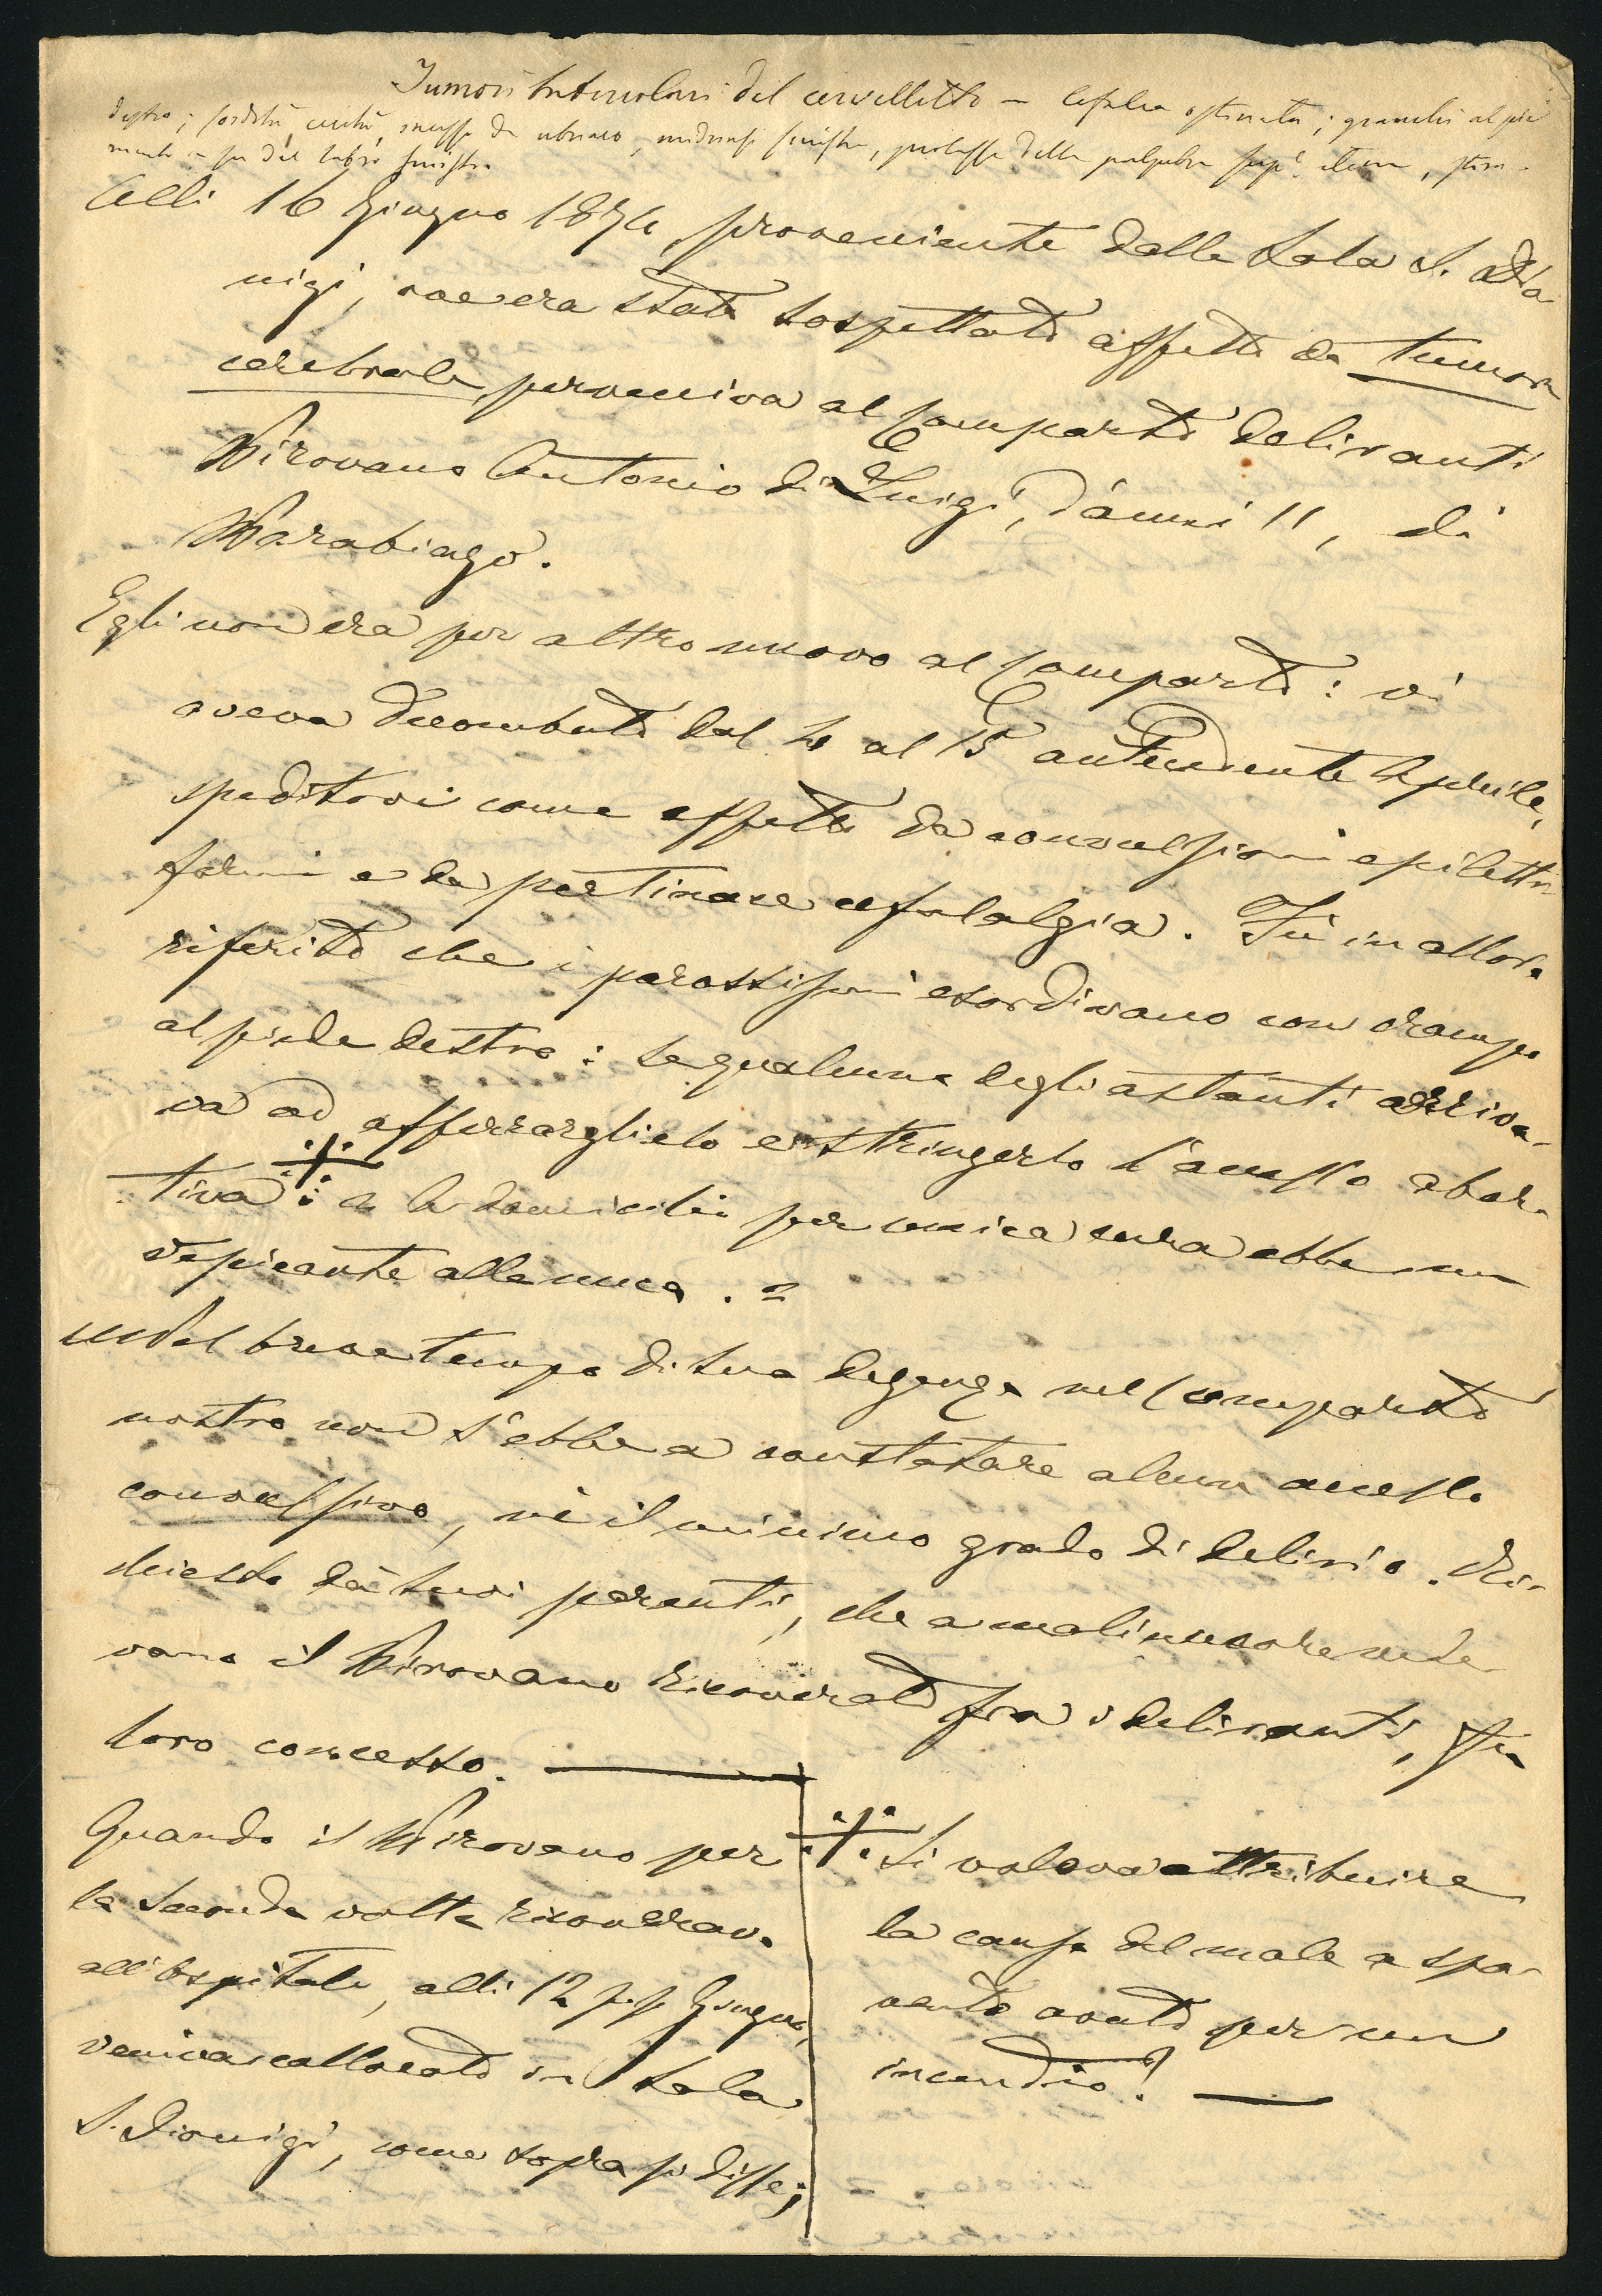 Tumori tubercolari del cervelletto — Cefalea ostinata; granchi al piè
destro; sordità, cecità, da ubriaco, midriasi sinistra, prolasso della palpebra sup.e
del labbro sinistro
Alli 16 Giugno 1874, proveniente dalla Sala S. Dio
nigi, ove era stato sospettato affetto da tumore
cerebrale, perveniva al Comparto deliranti
Pirovano Antonio di Luigi, d'anni 11, di
Parabiago.
Egli non era per altro nuovo al Comparto: vi
aveva decombuto dal 4 al 15 antecedente Aprile,
speditovi come affetto da convulsioni epiletti
formi e da pertinace cefalalgia. Fu in allora
riferito che i parossismi esordivano con crampo
al piede destro: se qualcuno degli astanti arriva-
va ad afferrarglielo e stringerlo l'accesso abor-
tiva ※: a domicilio per unica cura ebbe un
vescicante alla nuca. =
Nel breve tempo di sua degenza nel Comparto
nostro non s'ebbe a constatare alcun accesso
convulsivo, nè il minimo grado di delirio. Ri-
chiesto da' suoi parenti, che a malincuore vede
vano il Pirovano ricoverato fra i deliranti, fu
loro concesso. —
Quando il Pirovano per
la seconda volta ricoverava
all'Ospitale, alli 12 p.p. Giugno,
veniva collocato in Sala
S. Dionigi, come sopra si disse;
※ Si voleva attribuire
la causa del male a spa-
vento avuto per un
incendio! —